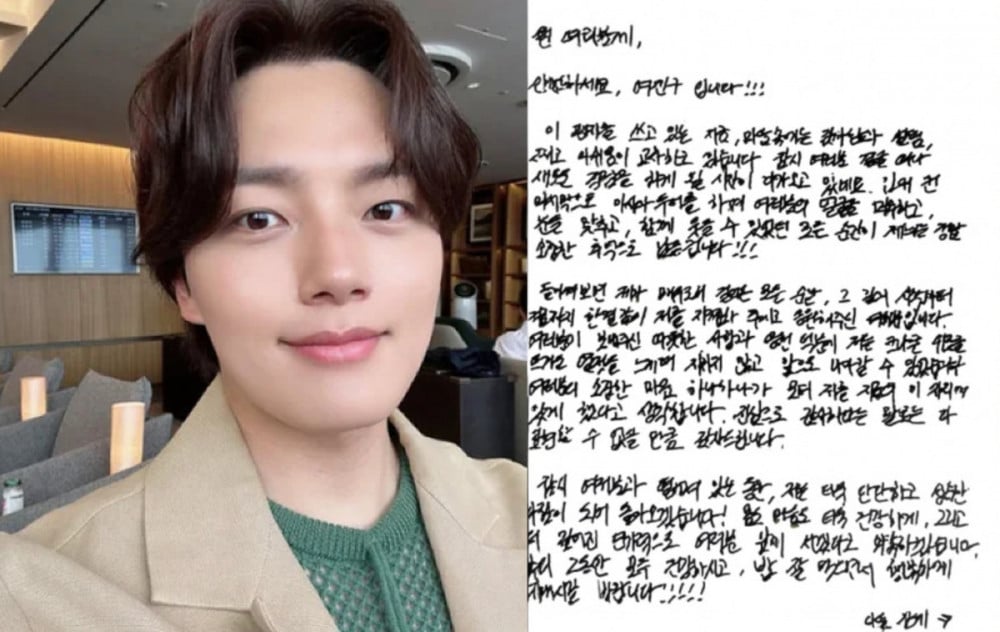 여러분께,
안녕하세요, 여진구 입니다!!!
이 편지를 쓰고 있는 지금, 마음속에는 감사함과 설렘,
그리고 아쉬움이 교차하고 있습니다 잠시 여러분 곁을 떠나
새로운 경험을 하게 될 시간이 다가오고 있네요. 입대 전
마지막으로 아시아 투어를 하며 여러분의 얼굴을 마주하고,
눈을 맞추고, 함께 웃을 수 있었던 모든 순간이 제게는 정말
소중한 추억으로 남을겁니다!!!
돌이켜보면 제가 배우로서 걸어온 모든 순간, 그 길의 시작부터
지금까지 한결같이 저를 지켜봐 주시고 응원해주신 여러분입니다.
여러분이 보내주신 따뜻한 사랑과 응원 덕분에 저는 크나큰
뜨거운 열정을 느끼며 지치지 않고 앞으로 나아갈 수 있었습니다
여러분의 소중한 마음 하나하나가 모여 저를 지금의 이 자리에
있게 했다고 생각합니다. 진심으로 감사하다는 말로는 다
표현할 수 없을 만큼 감사드립니다.
잠시 여러분과 떨어져 있는 동안, 저는 더욱 단단하고 성숙한
사람이 되어 돌아오겠습니다! 몸도 마음도 더욱 건강하게, 그리고
더 깊어진 연기력으로 여러분 앞에 서겠다고 약속하겠습니다.
그동안 모두 건강하시고, 밥 잘 먹으면서 행복하게
바랍니다!!!!!
다음 장에 →